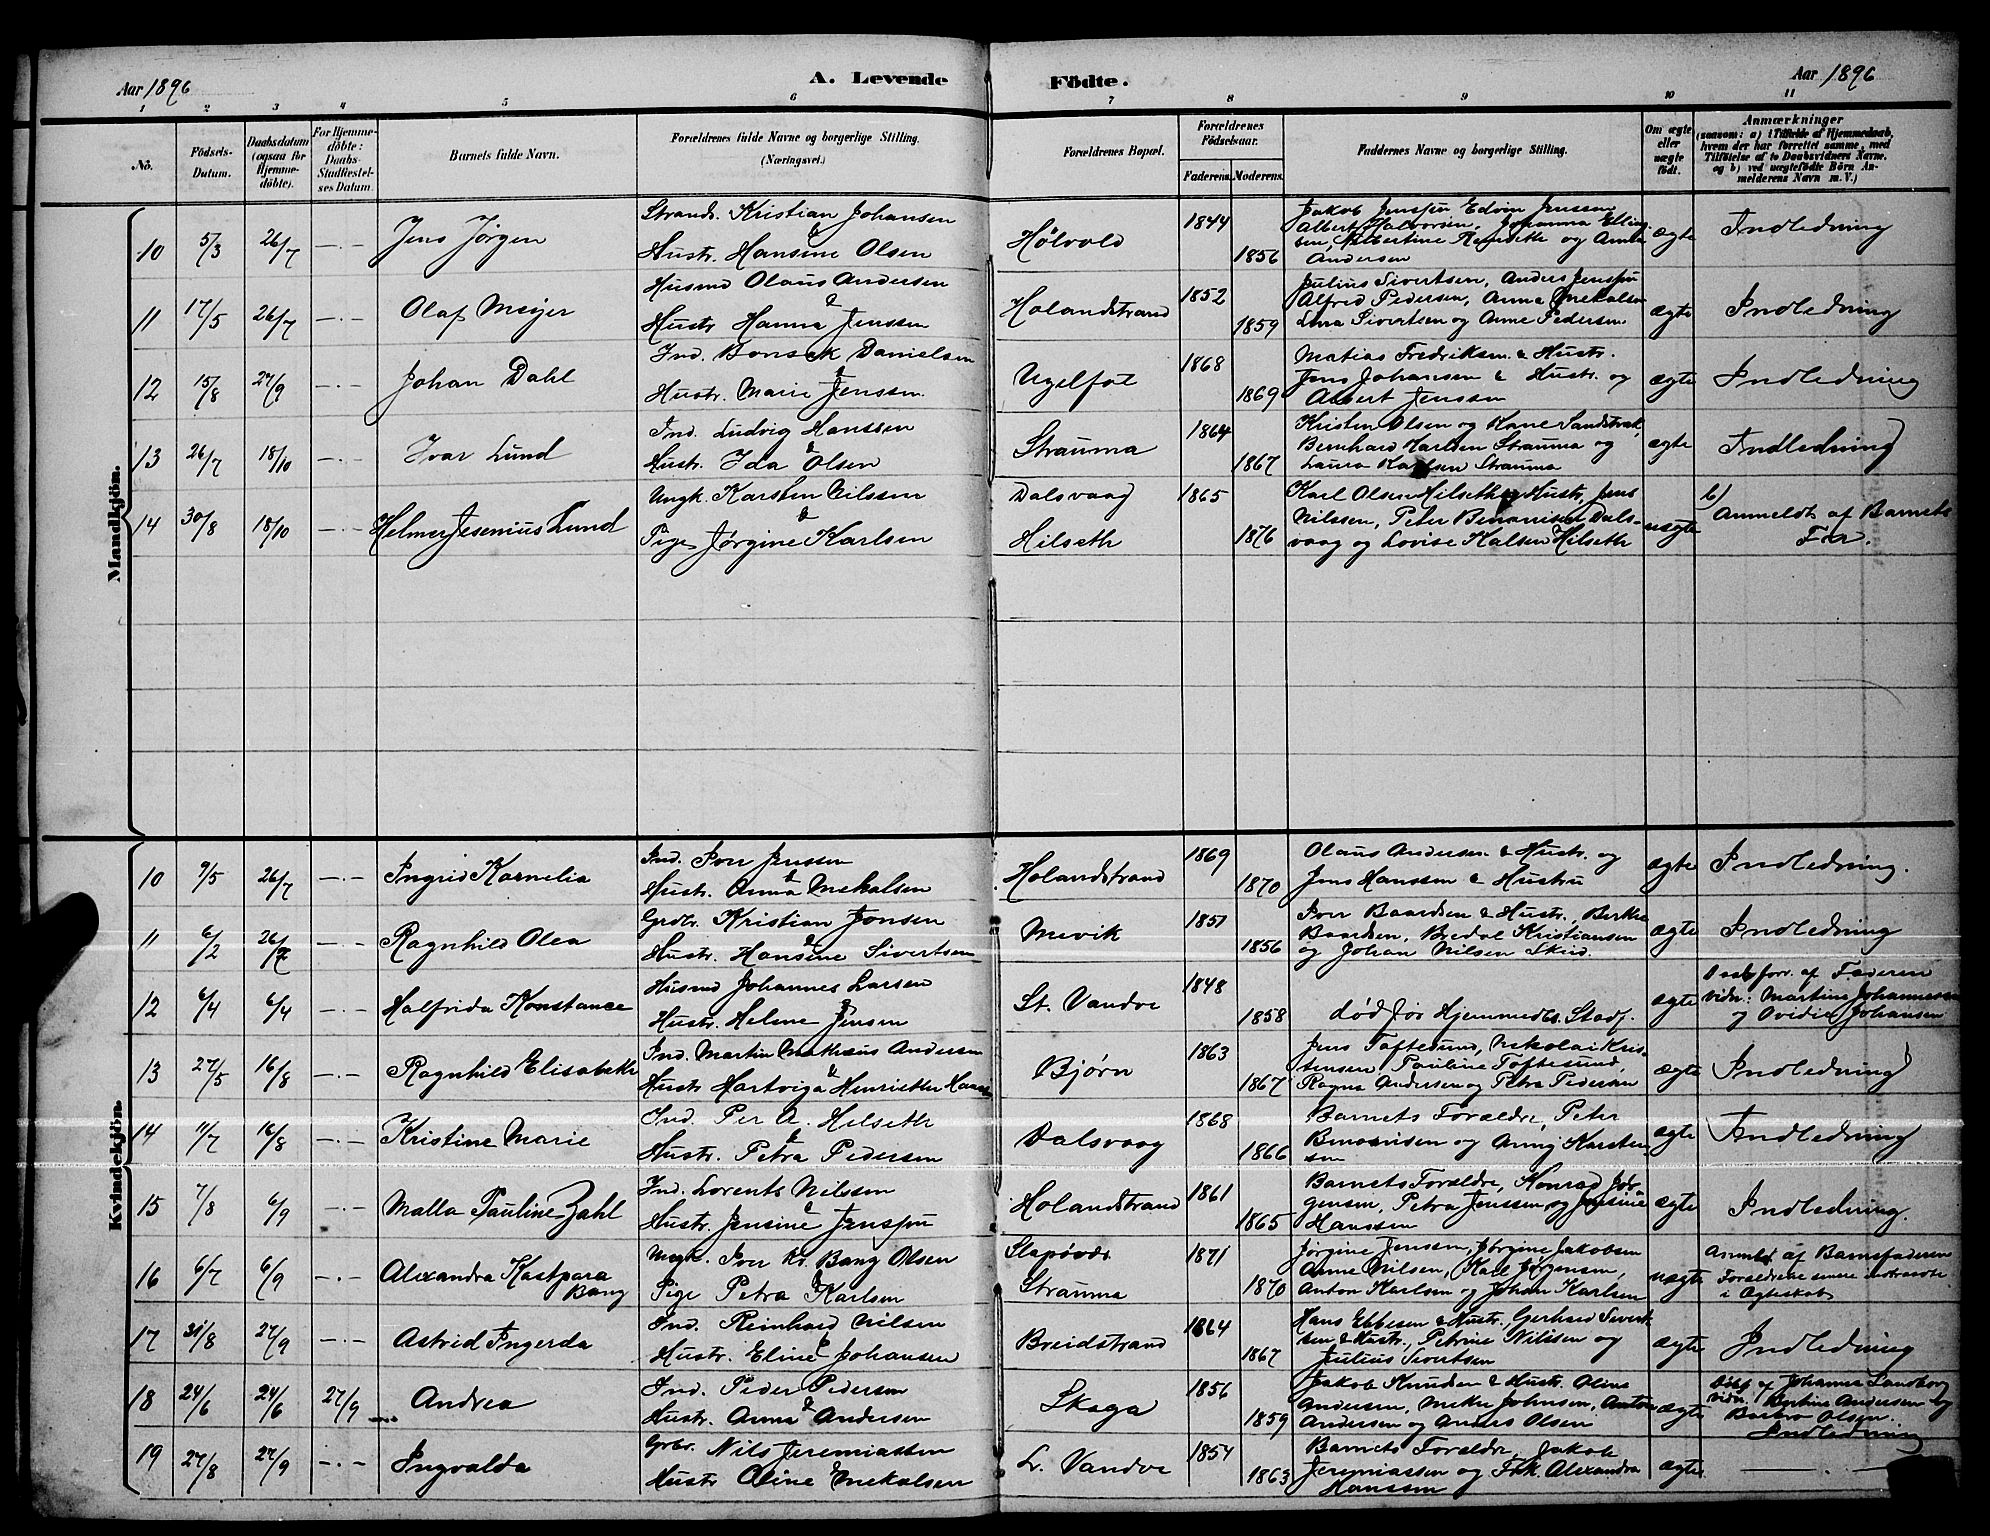 Aar 1896
A. Levende Födte.
Aar 1896
1 2 3 4 5 6 7 8 9 10 11
No.
Födsels-Datum.
Daabsdatum (ogsaa for Hjemmedöbte).
For Hjemmedöbte: Daabs-Stadfestelses Datum.
Barnets fulde Navn.
Forældrenes fulde Navne og borgerlige Stilling. (Næringsvei.)
Forældrenes Bopæl.
Forældrenes Födselsaar.
Faderens. Moderens.
Faddernes Navne og borgerlige Stilling.
Om ægte eller uægte födt.
Anmærkninger
(saasom: a) i Tilfælde af Hjemmedaab, hvem der har forrettet samme, med Tilföielse af to Daabsvidners Navne, og b) ved uægtefödte Börn Anmelderens Navn m. V.)
Mandkjön.
10 5/3 26/7 —·— Jens Jörgen
Strands. Kristian Johansen & Hustr. Hansine Olsen
Hölvold 1844 1856
Jakob Jenssen Edvin Jenssen
Albert Halvorsen, Johanna Elling-
sen, Albertine Benedikte og Anna
Andersen
ægte Indledning
11 17/5 26/7 —·— Olaf Meyer
Husmd Olaus Andersen & Hustr Hanna Jenssen
Holandstrand 1852 1859
Julius Sivertsen, Anders Jenssen
Alfred Pedersen, Anna Mekalsen
Lina Sivertsen og Anne Pedersen
ægte Indledning
12 15/8 27/9 —·— Johan Dahl
Ind. Bonsak Danielsen & Hustr. Marie Jenssen
Ugelfot 1868 1869
Matias Fredriksen & Hustr.
Jens Johansen & Hustr. og
Albert Jenssen
ægte Indledning
13 26/7 18/10 —·— Ivar Lund
Ind. Ludvig Hanssen & Hustr. Ida Olsen
Strauma 1864 1867
Kristen Olsen og Kane Sandstrak,
Bernhard Karlsen Strauma og
Laura Karlsen Strauma
ægte Indledning
14 30/8 18/10 —·— Helmer Jesenius Lund
Ungk. Karsten Nilssen & Pige Jörgine Karlsen
Dalsvaag Hilseth 1865 1876
Karl Olsen Hilseth & Hustr, Jens
Nilssen, Peter Benonisen Dals-
vaag og Lovise Kalsen Hilseth
uægte b) Anmeldt af Barnets Far.
Kvindekjön.
10 9/5 26/7 —·— Ingrid Kornelia
Ind. Iver Jenssen & Hustr. Anna Mekalsen
Holandstrand 1869 1870
Olaus Andersen & Hustr. og
Jens Hanssen & Hustru
ægte Indledning.
11 6/2 26/7 —·— Ragnhild Olea
Grdbr. Kristian Jonsen & Hustr. Hansine Sivertsen
Mevik 1851 1856
Iver Baardsen & Hustr., Berke
Baardsen, Bredal Kristiansen
og Johan Nilsen Skeid.
ægte Indledning
12 6/4 6/4 —·— Halfrida Konstance
Husmd Johannes Larsen & Hustr. Helene Jensen
St. Vandve 1848 1858
död för Hjemmeds. Stadf.
ægte Daab forr. af Faderen
Vidn: Martine Johannessen
og Ovidie Johansen
13 27/5 16/8 —·— Ragnhild Elisabeth
Ind. Martin Mathæus Andersen & Hustr Hartviga Henriette Hansen
Bjørn 1863 1867
Jens Toftesund, Nekolai Kris-
tensen Pauline Toftesund,
Ragna Andersen og Petra Pedersen
ægte Indledning
14 11/7 16/8 —·— Kristine Marie
Ind. Per A. Hilseth & Hustr. Petra Pedersen
Dalsvaag 1868 1866
Barnets Forældre, Peter
Benonisen og Anny Karsten-
sen
ægte Indledning
15 7/8 6/9 —·— Malla Pauline Zahl
Ind. Lorents Nilssen & Hustr. Jensine Jenssen
Holandstrand 1861 1865
Barnets Forældre, Konrad Jör-
gensen, Petra Jenssen og Jensine
Hanssen
ægte Indledning.
16 6/7 6/9 —·— Alexandra Kastpara Bang
Ungk. Iver Kr. Bang Olsen & Pige Petra Karlsen
Slapövær Strauma 1871 1870
Jörgine Jenssen, Jörgine Jakobsen
Anne Nilsen, Karl Jörgensen,
Anton Karlsen og Johan Karlsen
uægte Anmeldt af Barnefaderen
Forældrene senere indtraadte
i Ægteskab
17 31/8 27/9 —·— Astrid Ingerda
Ind. Reinhard Nilsen & Hustr. Eline Johansen
Breidstrand 1864 1867
Hans Ebbesen & Hustr., Gerhard Sivert-
sen & Hustr., Petrine Nilssen og
Julius Sivertsen
ægte Indledning
18 24/6 24/6 27/9 Andrea
Ind. Peder Pedersen & Hustr. Anna Andersen
Skaga 1856 1859
Jakob Knudsen & Hustr. Oline
Andersen, Mekke Johnsen, Anton
Andersen og Anders Olsen
ægte Döbt af Johanna Sandborg
Vidn. Bertine Andersen og
Barbro Olsen.
Indledning
19 27/8 27/9 —·— Ingvalda
Grbr. Nils Jeremiassen & Hustr Oline Mekalsen
L. Vandve 1854 1863
Barnets Forældre, Jakob
Jeremiassen og Frk. Alexandra
Hanssen
ægte —·—